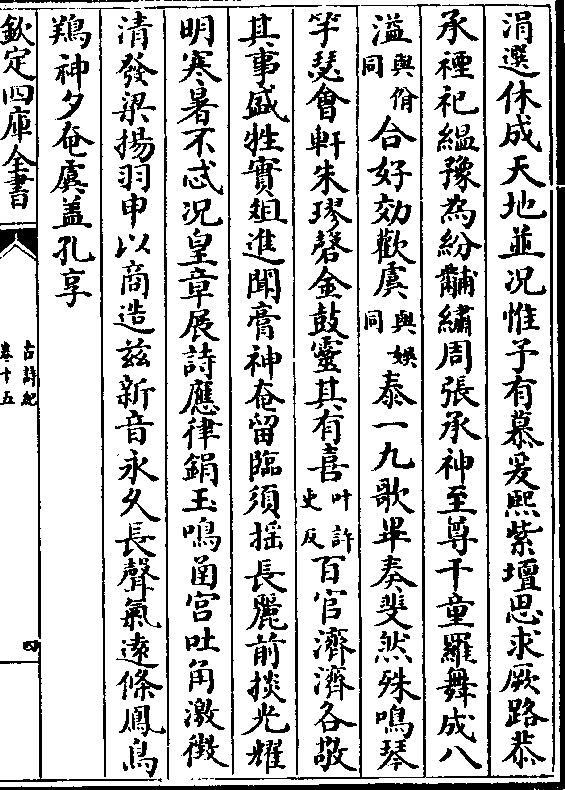 涓選休成天地並况惟予有慕爰熙紫壇思求厥路恭
承禋祀緼豫為紛黼繡周張承神至尊千童羅舞成八
溢與佾同合好効歡虞與娯同泰一九歌畢奏斐然殊鳴琴
竽瑟會軒朱璆磬金鼓靈其有喜叶許吏反百官濟濟各敬
其事盛牲實爼進聞膏神奄留臨須揺長麗前掞光耀
明寒暑不忒况皇章展詩應律鋗玉鳴函宫吐角激徴
清發梁揚羽申以商造兹新音永久長聲氣逺條鳳鳥
鶏神夕奄虞盖孔享
欽定四庫全書
古詩紀
卷十五
四